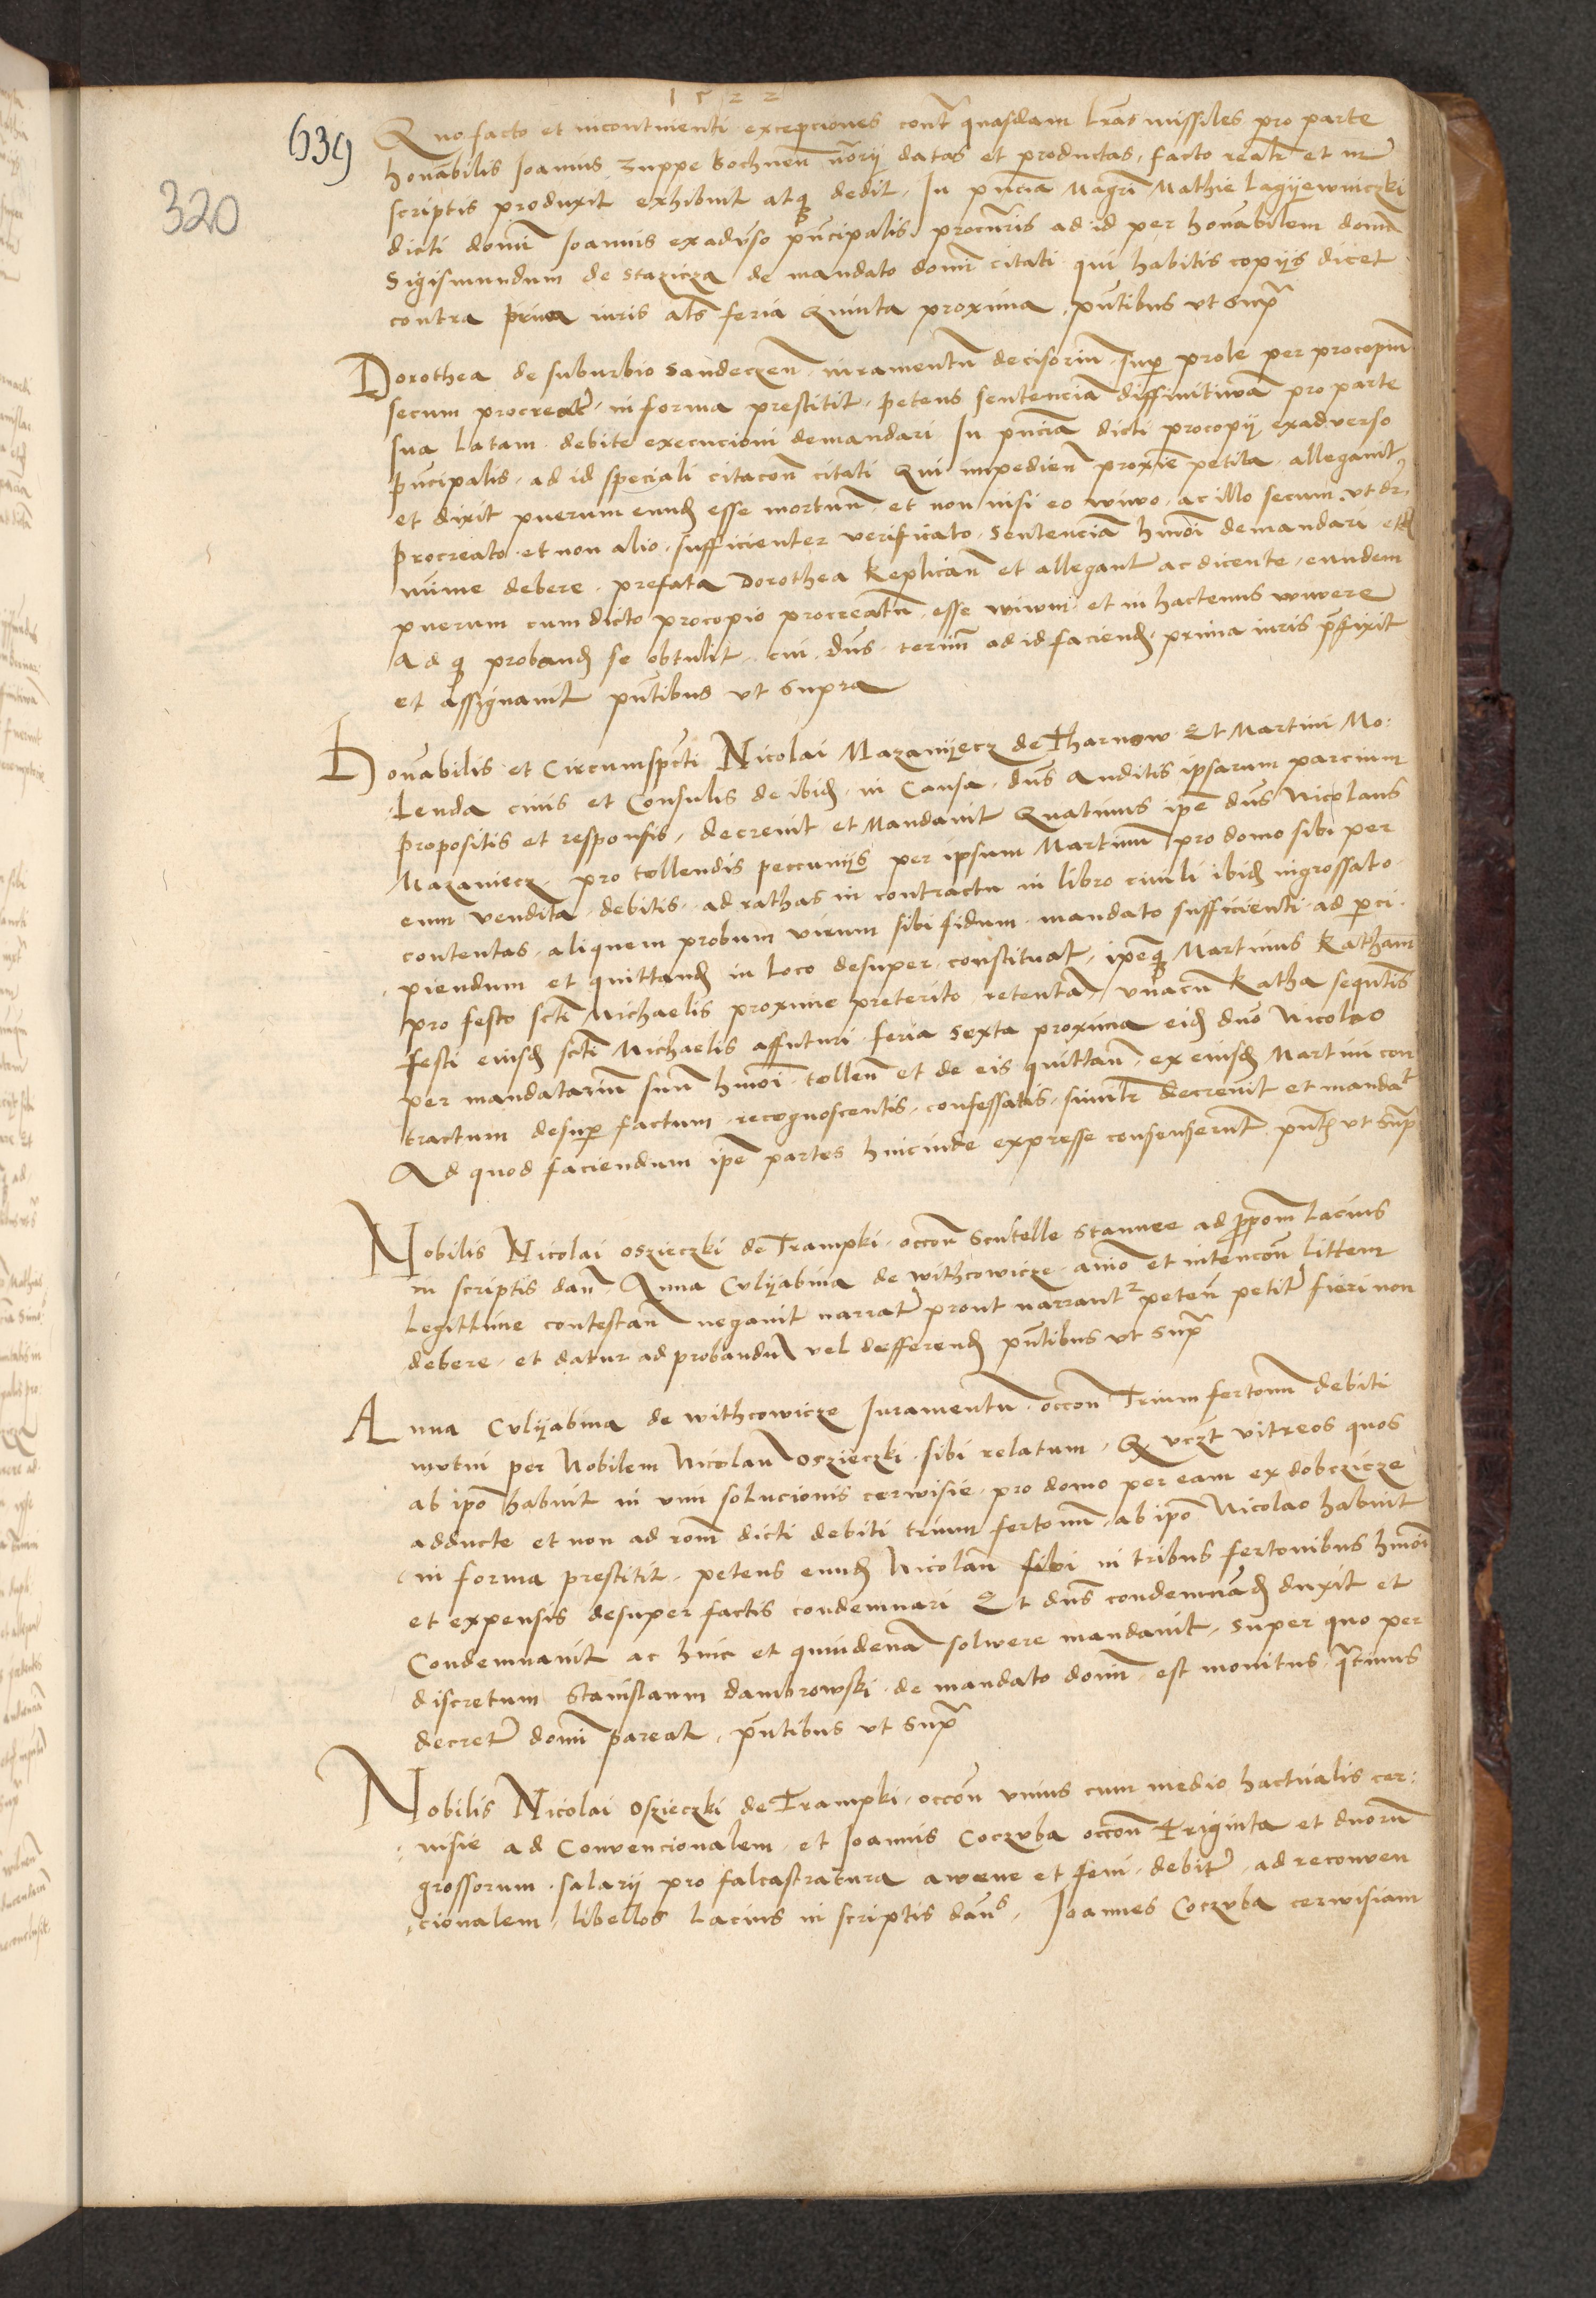 1522
639
320
Quo facto et incontinenti excepciones contra quasdam lras missiles pro parte
honabilis Ioannis Zuppe Bochnen nory datas et productas, facto realr et in
scriptis produxit exhibuit atq dedit, In pncia Magri Mathie Lagyewniczki
dicti domini Ioannis exadverso pncipalis procuris ad id per honabilem domn
Sigismundum de Stazicza de mandato domi citati qui habitis copiis dicet
contra prima iuris als feria Quinta proxima, pntibus ut supra
Dorothea de suburbio Sandeczen iuramentu decisoriu super prole per procopium
secum procreat in forma prestitit, petens sentencia diffinitiva pro parte
sua latam debite execucioni demandari In pncia dicti procopii exadverso
pncipalis, ad id speciali citacon citati Qui impedien proxime petita, allegavit
et dixit puerum eund esse mortuu et non nisi eo wiwo, ac illo secum ut dr,
procreato et non alio, sufficienter verificato, sentenciam hmoi demandari
mime debere, prefata Dorothea Replican et allegant ac dicente, eundem
puerum cum dicto procopio procreatu esse wiwm et in hactenus vivere
Ad q proband se obtulit, cui dns termi ad id faciend, prima iuris prefixit
et assignavit pntibus ut supra
Honabilis et Circumspecti Nicolai Mazanyecz de Tharnow Et Martini Mo:
lenda civis et Consulis de ibid, in Causa, dns Auditis ipsarum parcium
propositis et responsis, decrevit et Mandavit Quatinus ipe dns Nicolaus
Mazaniecz, pro tollendis peccuniis per ipsum Martinu pro domo sibi per
eum vendita, debitis, ad rathas in contractu in libro civili ibid ingrossato
contentas, aliquem probum virum sibi fidum, mandato sufficienti ad perci,
piendum et quittand in loco desuper constituat, ipeq Martinus Ratham
pro festo scti Michaelis proxime preterito, retenta, unacu Ratha sequtis
festi eiusd scti Michaelis affuturi, feria sexta proxima eid dno Nicolao
per mandatariu suu hmoi, tollen et de eis quittan, ex eiusd Martini con
tractum desup factum, recognoscentis, confessatis, similr decrevit et mandat
Ad quod faciendum ipe partes hincinde expresse consenserunt pntib ut supra
Nobilis Nicolai oszieczki de Trampki, occon scutelle stannee ad ppom lacius
in scriptis dan, Anna Culyabina de Withcowicze, animo et intencon littem
legittime contestan negavit narrat prout narrant peten petit fieri non
debere, et datur ad probandu vel defferend pntibus ut supra
Anna Culyabina de Withcowicze Iuramentu, occon Trium fertonu debiti
mutui per Nobilem Nicolau oszieczki, sibi relatum, Q uczt vitreos quos
ab ipo habuit in vim solucionis cerwisie, pro domo per eam ex dobczicze
adducte et non ad rom dicti debiti trium fertonu, ab ipo Nicolao habuit
in forma prestitit, petens eund Nicolau sibi in tribus fertonibus hmoi
et expensis desuper factis condemnari Et dns condemnad duxit et
Condemnavit ac hinc et quindena solvere mandavit, super quo per
discretum Stanislaum Dambrowski, de mandato domi, est monitus, qtinus
decret domi pareat, pntibus ut supra
Nobilis Nicolai oszieczki de Trampki, occon unius cum medio hactualis cer:
visie ad Convencionalem, et Ioannis Coczuba occon Triginta et duoru
grossorum, salarii pro falcastratura awene et feni, debit, ad reconven
cionalem, libellos lacius in scriptis dans, Ioannes Coczuba cerwisiam